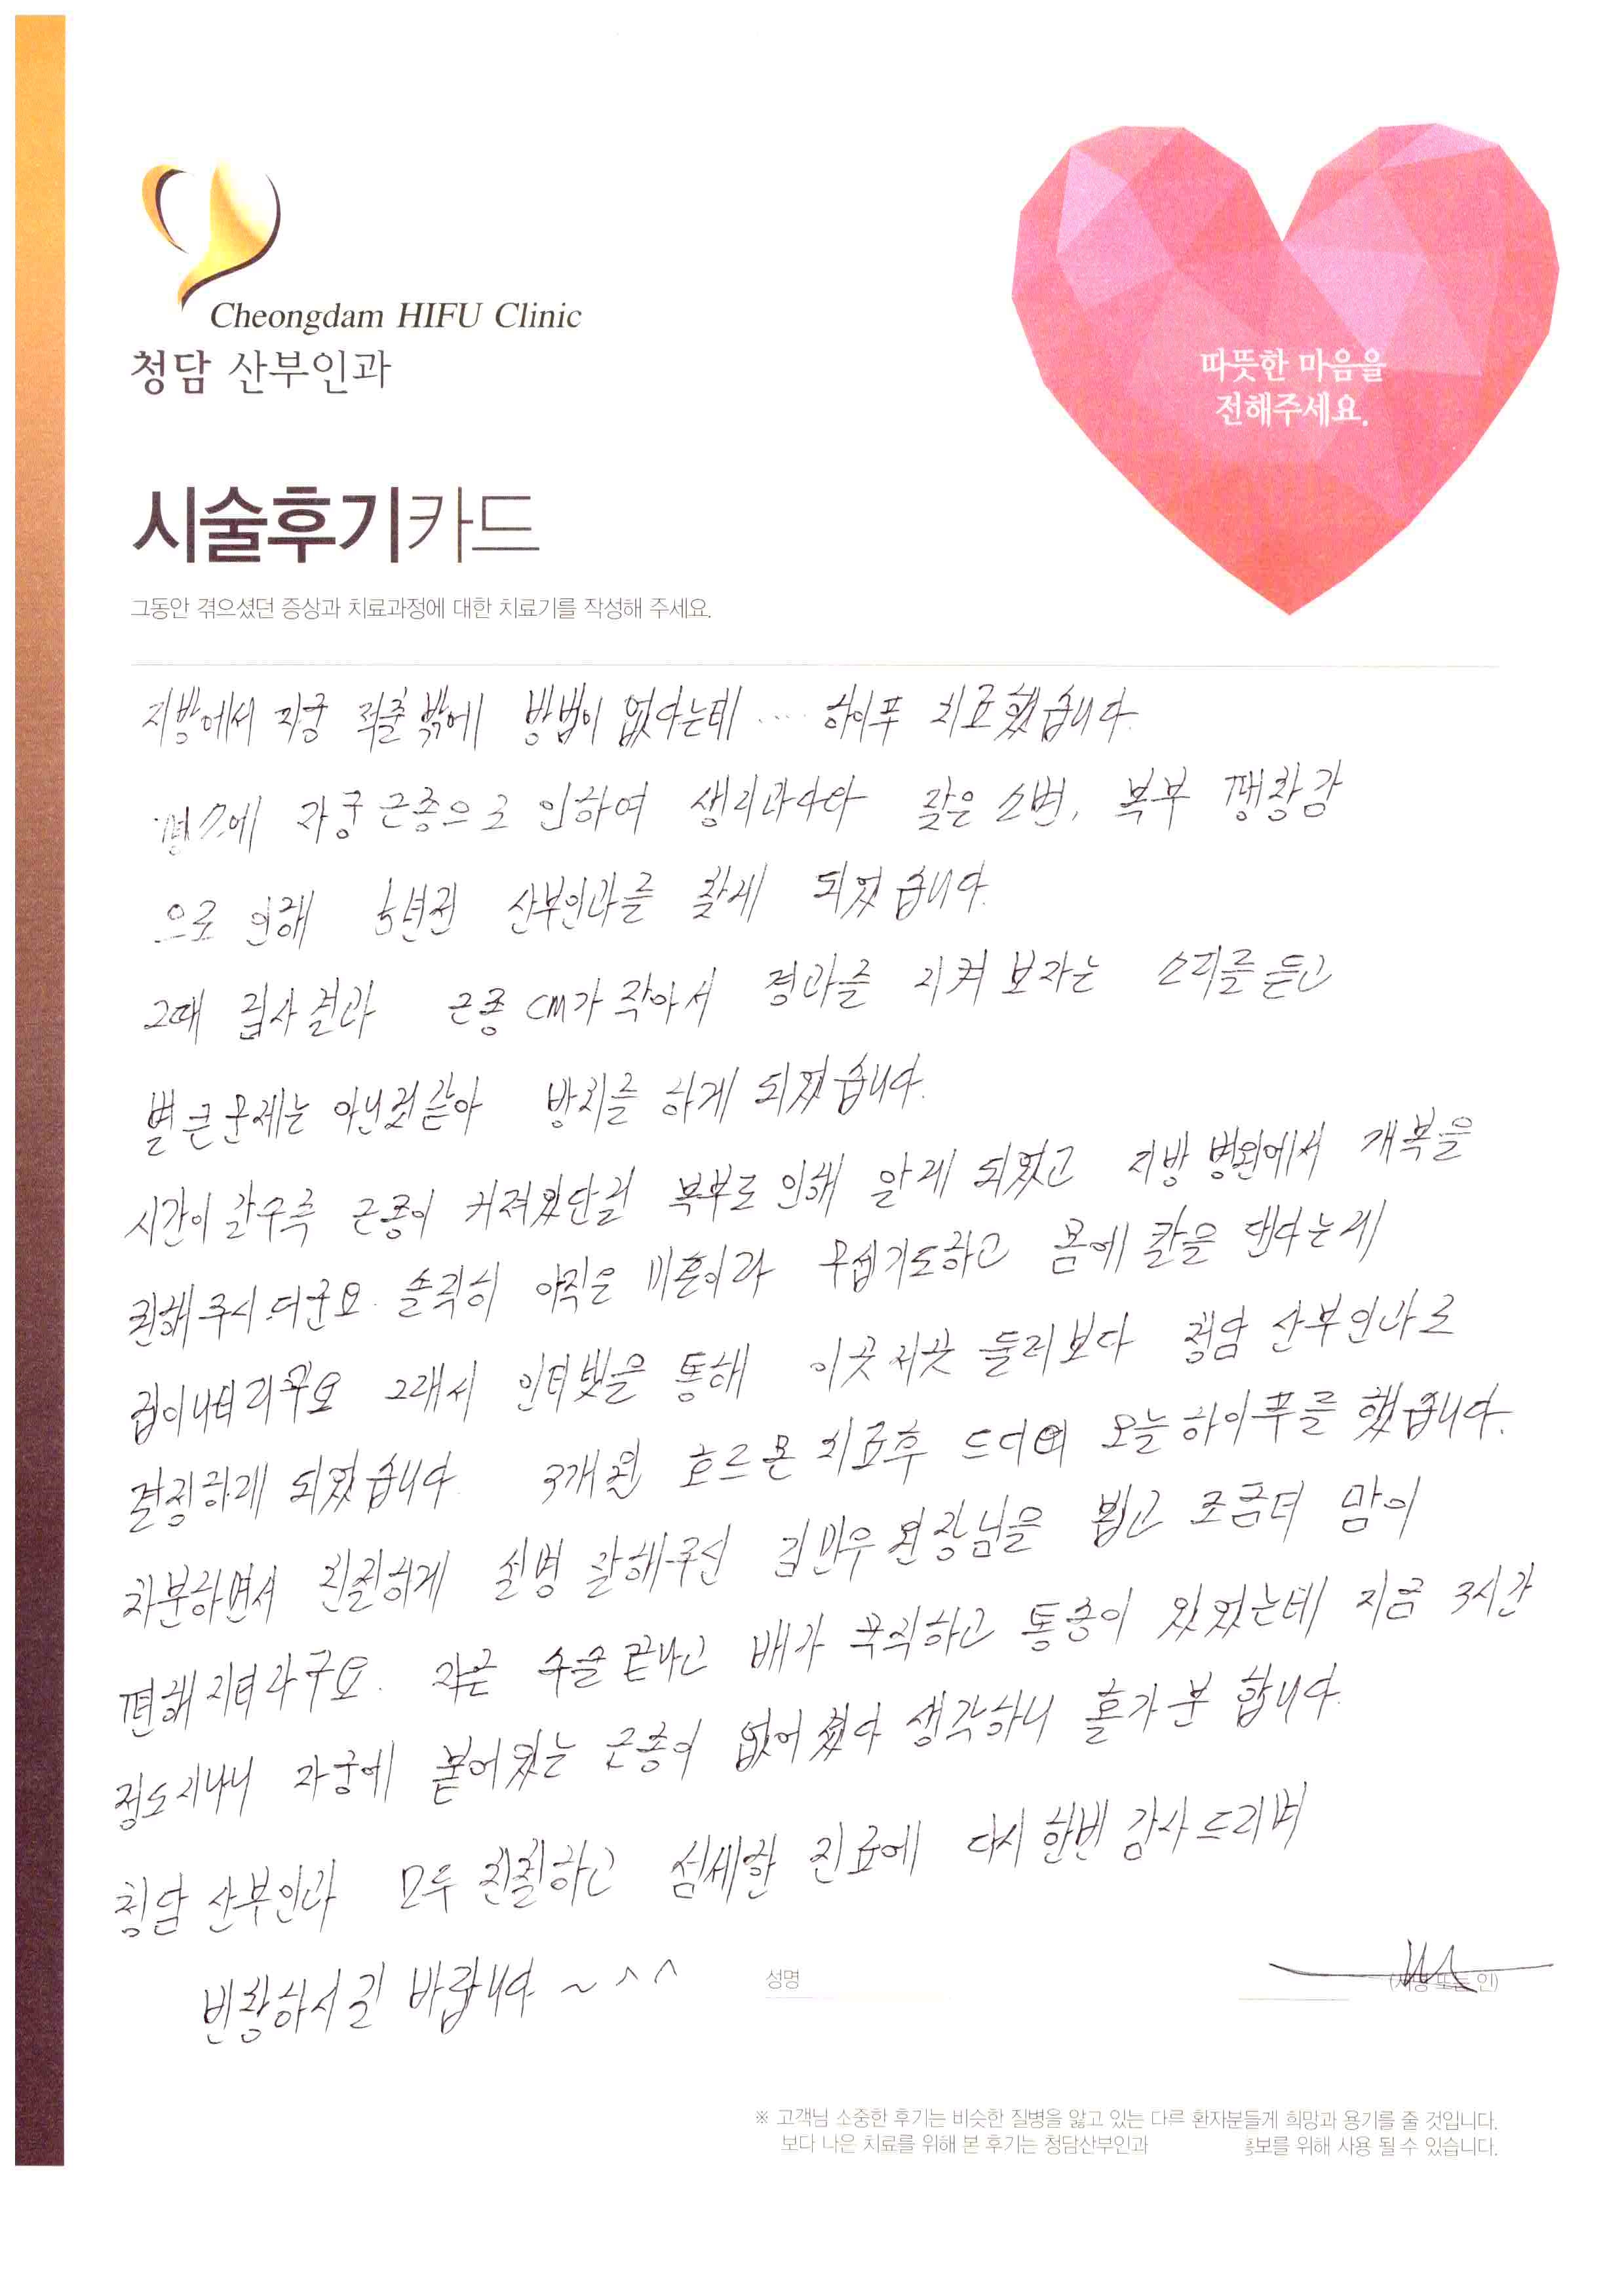 Cheongdam HIFU Clinic
청담 산부인과
따뜻한 마음을
전해주세요.
시술후기카드
그동안 겪으셨던 증상과 치료과정에 대한 치료기를 작성해 주세요.
지방에서 자궁 적출 밖에 방법이 없다는데 .... 하이푸 치료했습니다.
평소에 자궁근종으로 인하여 생리과다와 잦은 소변, 복부 팽창감
으로 인해 5년전 산부인과를 찾게 되었습니다.
그때 검사결과 근종 cm가 작아서 경과를 지켜보자는 소리를 듣고
별 큰 문제는 아닌것같아 방치를 하게 되었습니다.
시간이 갈수록 근종이 커져있단걸 복부로 인해 알게 되었고 지방 병원에서 개복을
권해주시더군요. 솔직히 아직은 미혼이라 무섭기도하고 몸에 칼을 댄다는게
겁이나더라구요 그래서 인터넷을 통해 이곳저곳 둘러보다 청담 산부인과로
결정하게 되었습니다. 3개월 호르몬 치료후 드디어 오늘 하이푸를 했습니다.
차분하면서 친절하게 설명 잘해주신 김민우 원장님을 뵙고 조금더 맘이
편해지더라구요. 자궁 수술 끝나고 배가 묵직하고 통증이 있었는데 지금 3시간
정도 지나니 자궁에 붙어있는 근종이 없어졌다 생각하니 홀가분 합니다.
청담 산부인과 모두 친절하고 섬세한 진료에 다시 한번 감사드리며
번창하시길 바랍니다 ~ ^^
성명 (서명 또는 인)
※ 고객님 소중한 후기는 비슷한 질병을 앓고 있는 다르 환자분들게 희망과 용기를 줄 것입니다.
보다 나은 치료를 위해 본 후기는 청담산부인과 홍보를 위해 사용 될 수 있습니다.